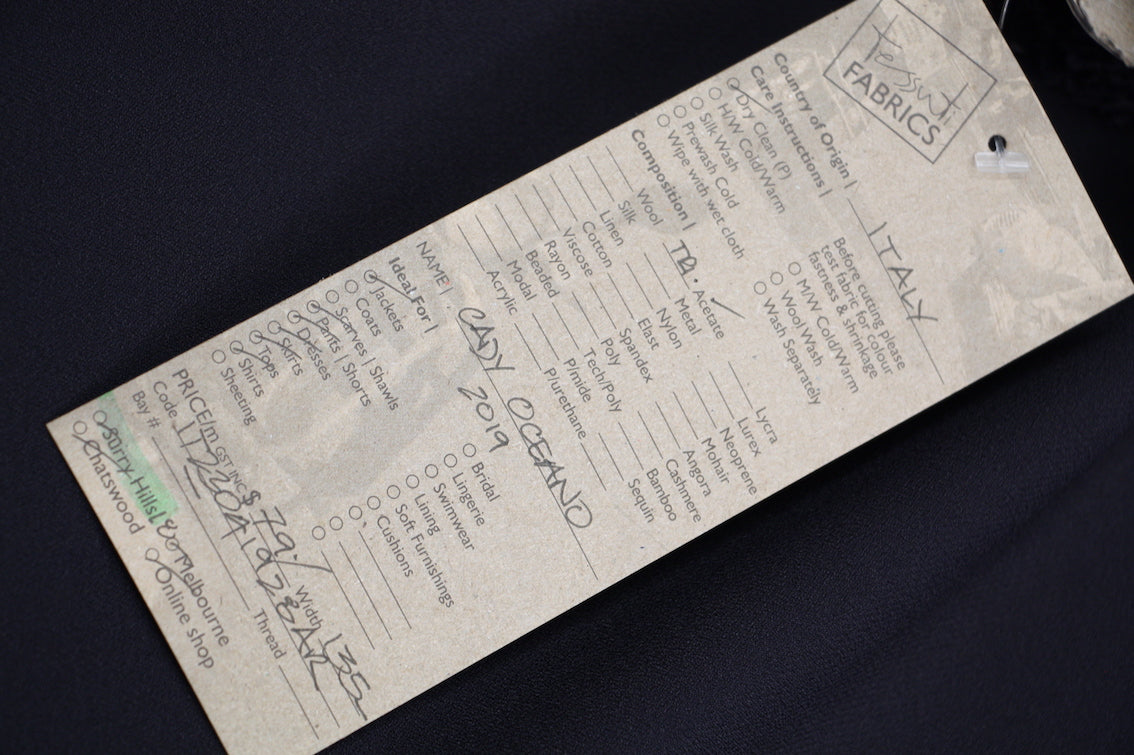 tessuti
FABRICS
Country of Origin | ITALY
Care Instructions |
Dry Clean (P)
H/W Cold/Warm
Silk Wash
Prewash Cold
Wipe with wet cloth
Before cutting please
test fabric for colour
fastness & shrinkage
M/W Cold/Warm
Wool Wash
Wash Separately
Composition |
Wool
Silk
Linen
Cotton
Viscose
Rayon
Beaded
Modal
Acrylic
TR. Acetate
Metal
Nylon
Elast
Spandex
Poly
Tech/Poly
P/mide
P/urethane
Lycra
Lurex
Neoprene
Mohair
Angora
Cashmere
Bamboo
Sequin
NAME | CADY OCEANO
2019
Ideal For |
Jackets
Coats
Scarves | Shawls
Pants | Shorts
Dresses
Skirts
Tops
Shirts
Sheeting
Bridal
Lingerie
Swimwear
Lining
Soft Furnishings
Cushions
PRICE/m GST INC $ 79./ Width 135
Code
Bay #
Thread
Surry Hills
Melbourne
Chatswood
Online shop